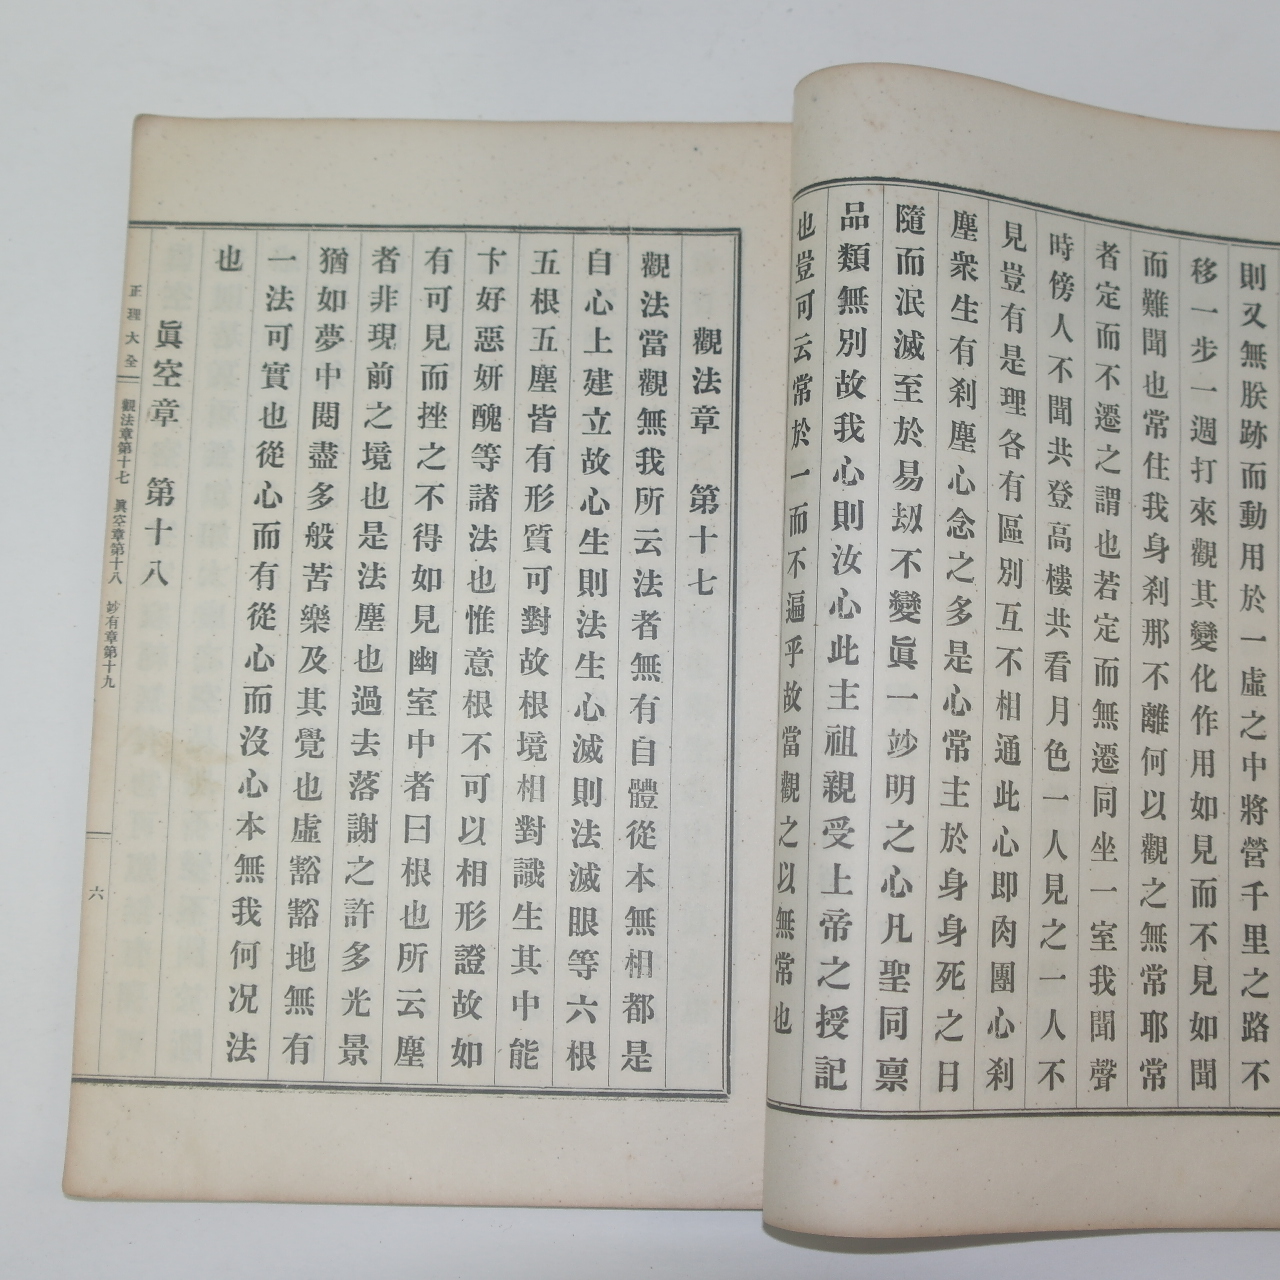 則又無朕跡而動用於一虛之中將營千里之路不
移一步一週打來觀其變化作用如見而不見如聞
而難聞也常住我身刹那不離何以觀之無常耶常
者定而不遷之謂也若定而無遷同坐一室我聞聲
時傍人不聞共登高樓共看月色一人見之一人不
見豈有是理各有區別互不相通此心即肉團心刹
塵衆生有刹塵心念之多是心常主於身身死之日
隨而泯滅至於易刼不變眞一竗明之心凡聖同禀
品類無別故我心則汝心此主祖親受上帝之授記
也豈可云常於一而不遍乎故當觀之以無常也
觀法章 第十七
觀法當觀無我所云法者無有自體從本無相都是
自心上建立故心生則法生心滅則法滅眼等六根
五根五塵皆有形質可對故根境相對識生其中能
卞好惡姸醜等諸法也惟意根不可以相形證故如
有可見而挫之不得如見幽室中者曰根也所云塵
者非現前之境也是法塵也過去落謝之許多光景
猶如夢中閱盡多般苦樂及其覺也虛豁豁地無有
一法可實也從心而有從心而沒心本無我何况法
也
眞空章 第十八
正理大全 觀法章第十七 眞空章第十八 竗有章第十九 六